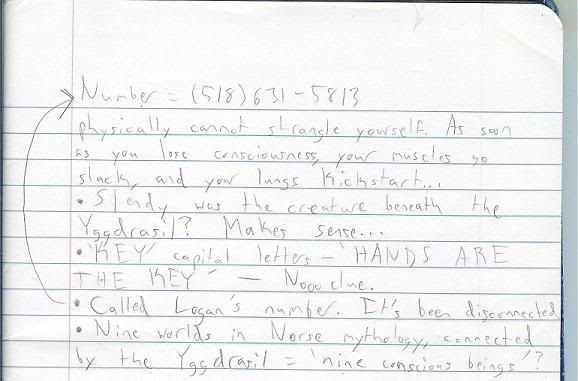 Number = (518) 631-5813
physically cannot strangle yourself. As soon
as you lose consciousness, your muscles go
slack, and your lungs kickstart...
• Slendy was the creature beneath the
Yggdrasil? Makes sense...
• 'KEY' capital letters - 'HANDS ARE
THE KEY' - Nooo clue.
• Called Logan's number. It's been disconnected
• Nine worlds in Norse mythology, connected
by the Yggdrasil = 'nine conscious beings'?